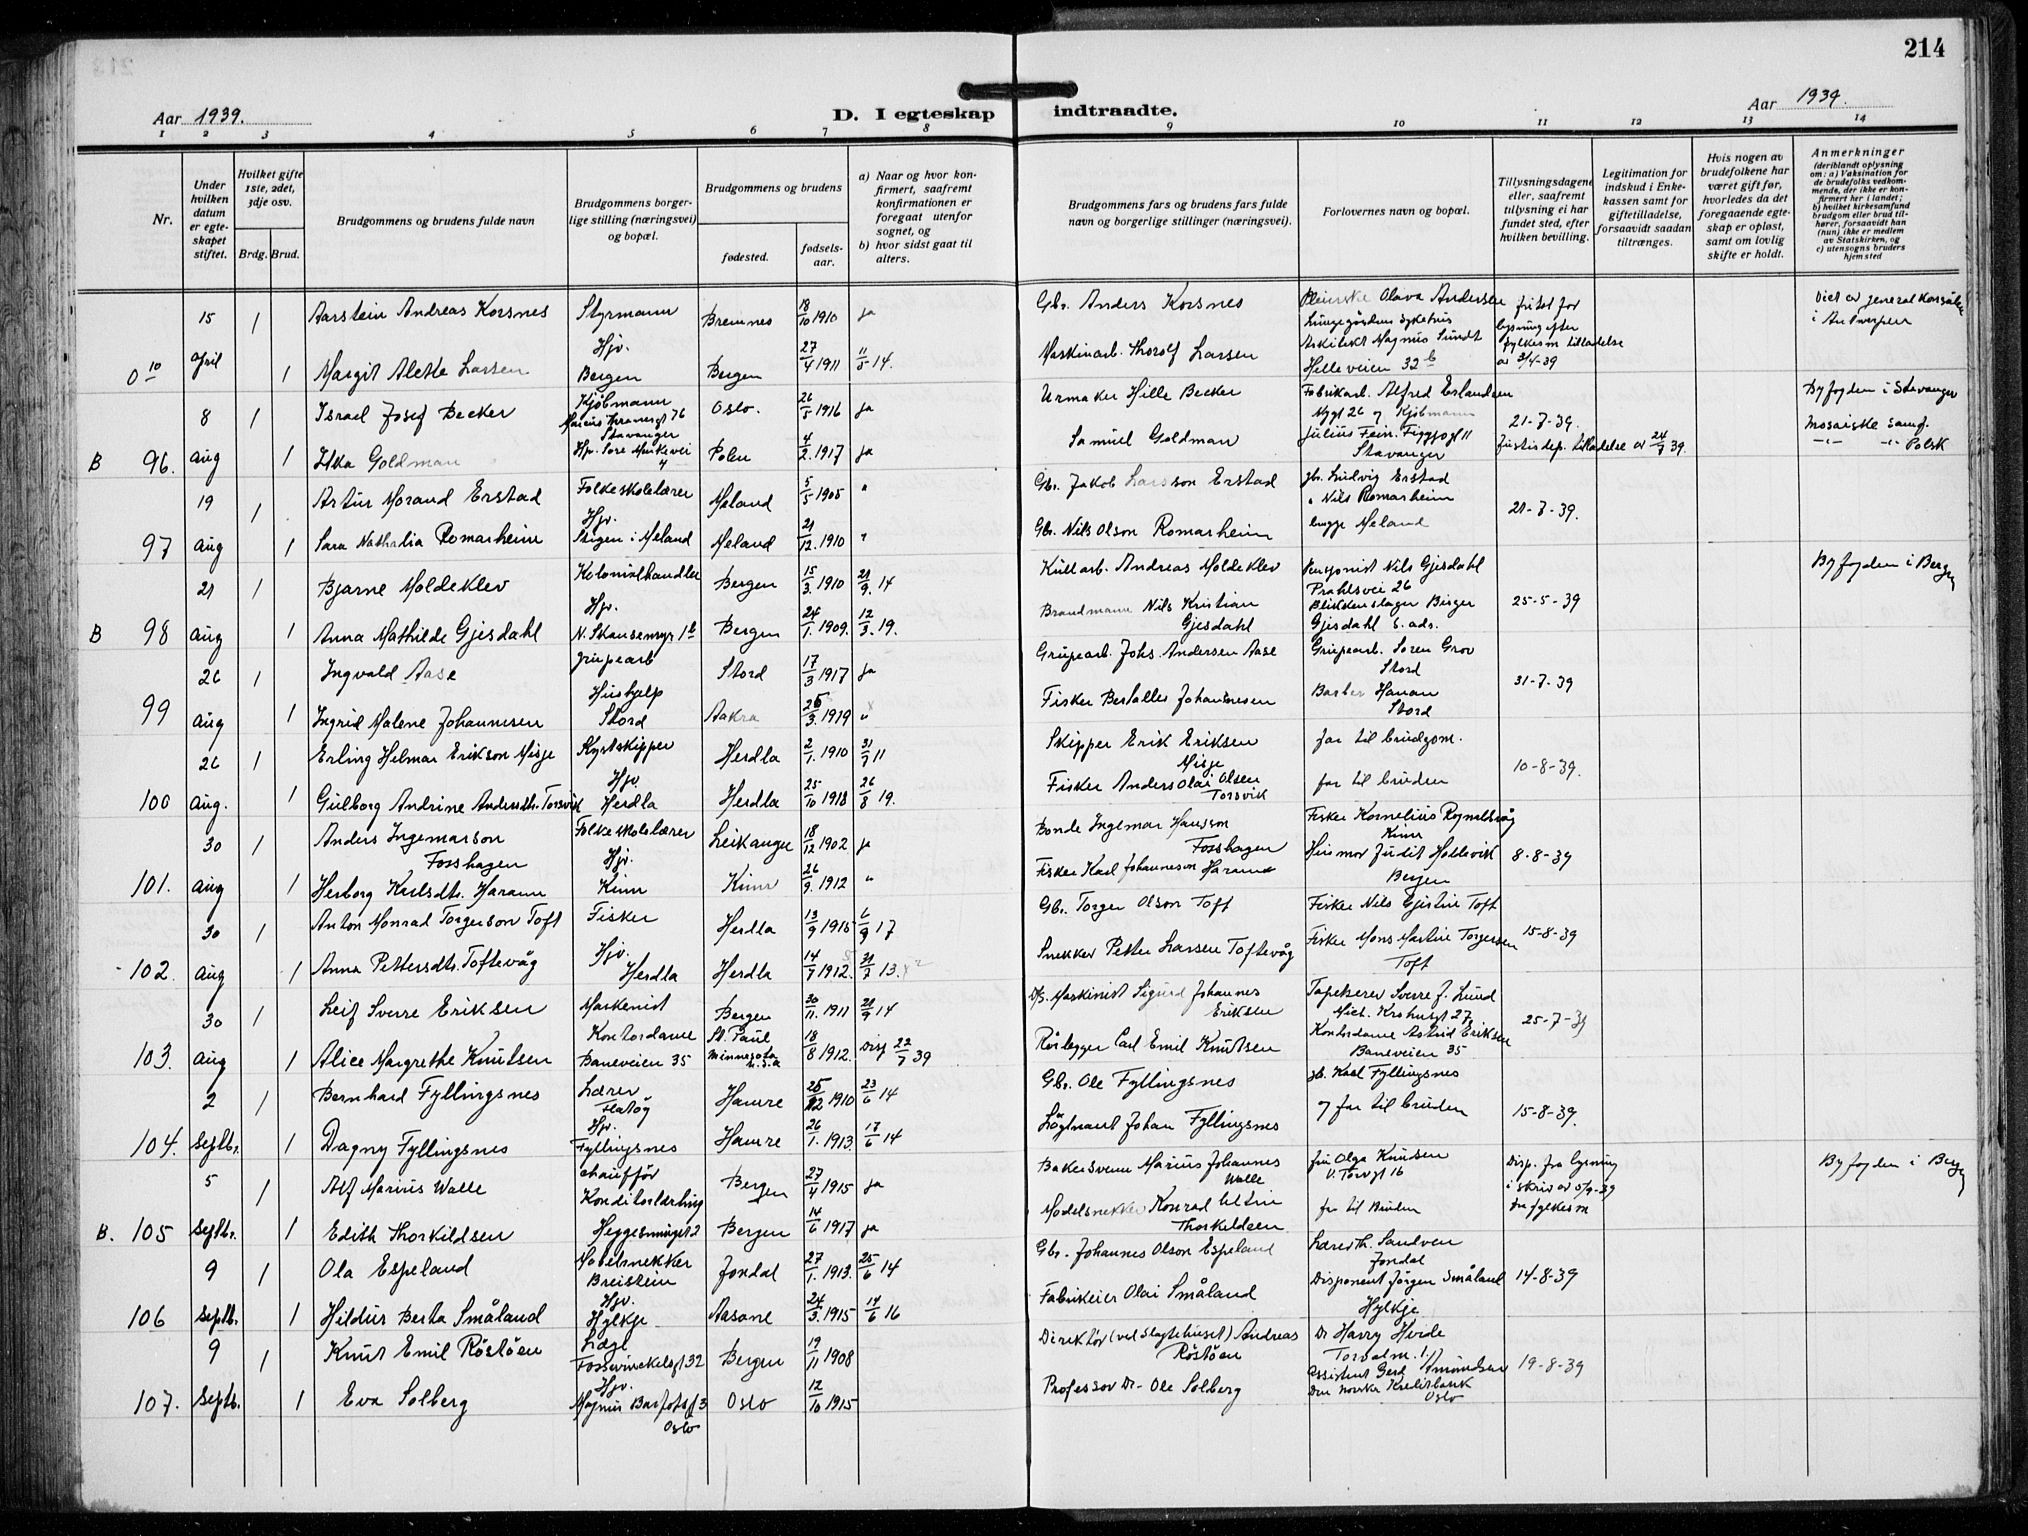 214
Aar 1939.
D. I egteskap indtraadte.
Aar 1939.
1 2 3 4 5 6 7 8 9 10 11 12 13 14
Nr.
Under hvilken datum er egteskapet stiftet.
Hvilket gifte 1ste, 2det, 3dje osv.
Brdg. Brud.
Brudgommens og brudens fulde navn
Brudgommens borgerlige stilling (næringsvei) og bopæl.
Brudgommens og brudens
fødested.
fødselsaar.
a) Naar og hvor konfirmert, saafremt konfirmationen er foregaat utenfor sognet, og
b) hvor sidst gaat til alters.
Brudgommens fars og brudens fars fulde navn og borgerlige stillinger (næringsvei).
Forlovernes navn og bopæl.
Tillysningsdagene eller, saafremt tillysning ei har fundet sted, efter hvilken bevilling.
Legitimation for indskud i Enkekassen samt for giftetilladelse, forsaavidt saadan tiltrænges.
Hvis nogen av brudefolkene har været gift før, hvorledes da det foregaaende egteskap er opløst, samt om lovlig skifte er holdt.
Anmerkninger
(deriblandt oplysning om: a) Vaksination for de brudefolks vedkommende, der ikke er konfirmert her i landet; b) hvilket kirkesamfund brudgom eller brud tilhører, forsaavidt han (hun) ikke er medlem av Statskirken, og c) utensogns bruders hjemsted
15 1 Aarstein Andreas Korsnes Styrmann Bremnes 18/10 1910 ja Gbr. Anders Korsnes Olava Andersen fritat for Viet av generalkonsulen
Hjv. Lungegårdens sykehus lysning efter i Antwerpen
0 10 April 1 Margit Alette Larsen Bergen Bergen 27/4 1911 11/5-14. Maskinarb. Thorolf Larsen Arkitekt Magnus Sundt fylkesm tilladelse
Helleveien 32 b av 3/4-39
8 1 Israel Josef Becker Kjøbmann Oslo. 26/5 1916 ja Urmaker Hille Becker Fabrikarb. Alfred Erlandsen Byfogden i Stavanger
76 Stavanger Nygt 26 og Kjøbmann 21-7-39. Mosaiske samf.
B 96. Aug 1 Itka Goldman Hjv. Polen 4/2. 1917 ja Samuel Goldman Julius Fein. 11 Justisdep. tilladelse av 24/7 39. -"- -"- Polsk
4 Stavanger
19 1 Artur Morand Erstad Folkeskolelærer Meland 5/5 1905 " Gbr. Jakob Larsson Erstad gb. Ludvig Erstad
Hjv. " Nils Romarheim 21-7-39.
97 Aug 1 Sara Nathalia Romarheim i Meland Meland 21/12. 1910 " Gbr. Nils Olson Romarheim begge Meland
21 1 Bjarne Moldeklev Kolonialhandler Bergen 15/3. 1910 21/9. 14 Kullarb. Andreas Moldeklev Pensjonist Nils Gjesdahl Byfogden i Bergen
Hjv. Prahlsvei 26
B 98 Aug 1 Anna Mathilde Gjesdahl N. Skansemyr 1 b Bergen 24/1. 1909. 12/3. 19. Brandmann Nils Kristian Gjesdahl Blikkenslager Birger Gjesdahl s. adr. 25-5-39
26 1 Ingvald Aase Grupearb Stord 17/3 1917 ja Grupearb. Johs. Andersen Aase Grupearb. Søren Grov
Hushjelp Stord 31-7-39
99 Aug 1 Ingrid Malene Johannesen Stord Aakra 26/3. 1919 " Fisker Johannesen Barber Hanan
Stord
26 1 Erling Helmar Erikson Misje Kystskipper Herdla 2/1. 1910 31/7 11 Skipper Erik Eriksen Misje far til brudgom.
Hjv. 10-8-39.
100 Aug. 1 Gulborg Andrine Andersdtr. Torsvik Herdla Herdla 25/10 1918 26/8 19. Fisker Anders Olai Olsen Torsvik far til bruden
30 1 Anders Ingemarson Fosshagen Folkeskolelærer Leikanger 18/12 1902 ja Bonde Ingemar Hansson Fosshagen Fisker Kornelius Reynoldsvåg
Hjv. Kinn
101. Aug 1 Herborg Karlsdtr. Haramn Kinn Kinn 26/9. 1912 " Fisker Karl Johanneson Husmor Judit Hollevik 8-8-39
Bergen
30 1 Anton Monrad Torgerson Toft Fisker Herdla 13/9 1915 1/9 17 Gbr. Torger Olson Toft Fisker Nils Toft
Hjv. 15-8-39
102. Aug 1 Anna Pettersdtr. Toftevåg Herdla Herdla 14/7 1912. 21/7 13. Snekker Petter Larsen Toftevåg Fisker Mons Martin Torgersen Toft
30 1 Leif Sverre Eriksen Maskinist Bergen 30/11. 1911 28/9 14 D/s. Maskinist Sigurd Johannes Eriksen Tapetserer Sverre J. Lund
Kontordame Mich. Krohnsgt 27 25-7-39
103. Aug 1 Alice Margrethe Knutsen Baneveien 35 St. Paul Minnesota U.S.A 18/8 1912. Disp 22/7 39 Rørlegger Carl Emil Knutsen Kontordame Astrid Eriksen
Baneveien 35
2 1 Bernhard Fyllingsnes Lærer Flatøy Hamre 25/12 1910 23/6 14 Gbr. Ole Fyllingsnes gb. Karl Fyllingsnes
Hjv. og far til bruden 15-8-39.
104. Septbr. 1 Dagny Fyllingsnes Fyllingsnes Hamre 26/1. 1913. 17/6 14 Løytnant Johan Fyllingsnes
5 1 Alf Marius Walle Chauffør Bergen 27/4 1915 ja Bakersvenn Marius Johannes Walle fru Olga Knudsen Disp. fra lysning Byfogden i Bergen
Konditorlærling V. Torvgt 16 i skriv av 5/9-39
B. 105 Septbr. 1 Edith Thorkildsen 2 Bergen 14/6 1917 ja Modelsnekker Konrad Thorkildsen far til Bruden fra fylkesm
9 1 Ola Espeland Møbelsnekker Breistein Jondal 27/1. 1913. 25/6 14 Gbr. Johannes Olson Espeland Lærer Th. Sandven
Hjv. Jondal
106 Septbr. 1 Hildur Berta Småland Hylkje Aasane 24/3. 1915 14/6 16 Fabrikeier Olai Småland Disponent Jørgen Småland 14-8-39
Hylkje
9 1 Knut Emil Röstöen Læge Fossevinckelsgt 32 Bergen 19/11 1908 Direktør (ved Slagtehuset) Andreas Röstöen Dr Harry Hvide
Hjv. 19-8-39
107. Septbr. 1 Eva Solberg Magnus Barfotsgt 3 Oslo Oslo 12/10 1915 Professor Dr- Ole Solberg Assistent Gerd Amundsen
Den norske Kreditbank
Oslo